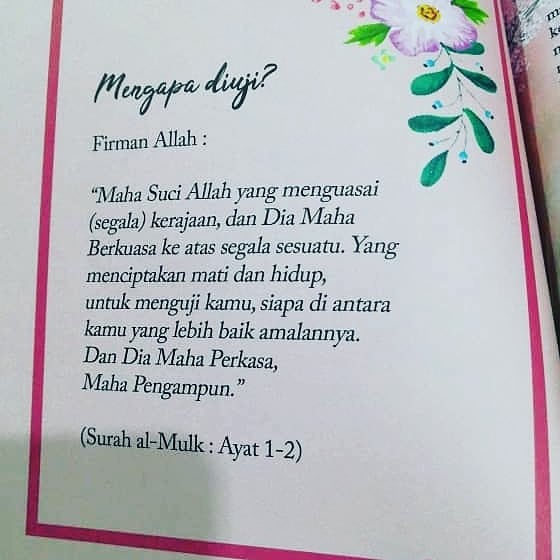 Mengapa diuji?
Firman Allah :
“Maha Suci Allah yang menguasai
(segala) kerajaan, dan Dia Maha
Berkuasa ke atas segala sesuatu. Yang
menciptakan mati dan hidup,
untuk menguji kamu, siapa di antara
kamu yang lebih baik amalannya.
Dan Dia Maha Perkasa,
Maha Pengampun.”
(Surah al-Mulk : Ayat 1-2)